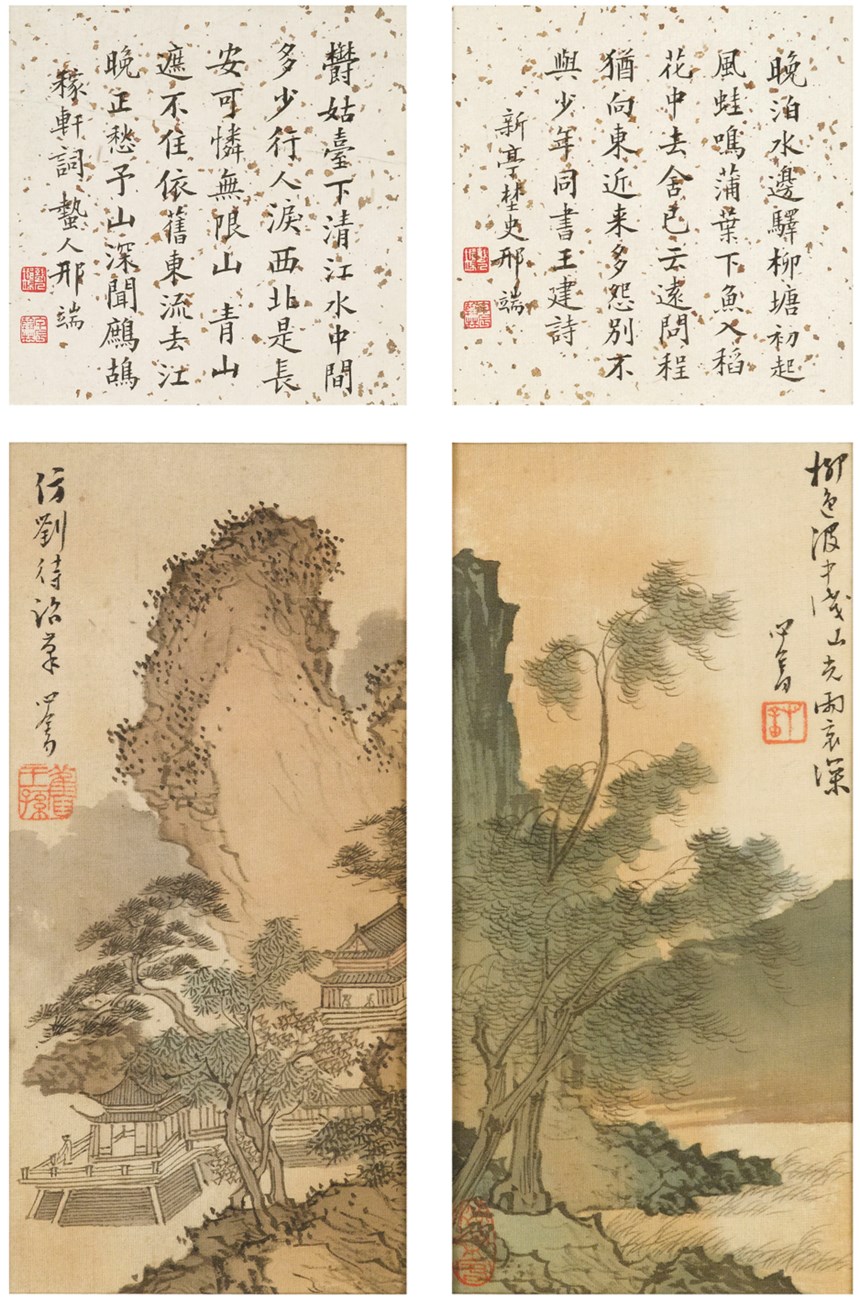 晚泊水邊驛柳塘初起
風蛙鳴蒲葉下魚入稻
花中去舍已云遠問程
猶向東近来多怨別不
與少年同書王建詩
新亭埜史邢端
欝姑臺下清江水中間
多少行人淚西北是長
安可憐無限山 青山
遮不住依舊東流去江
晚正愁予山深聞鷓鴣
稼軒詞 蟄人邢端
柳色波中淺山光雨裏深
心畬
溥儒
仿劉待詔筆 心畬
舊王孫